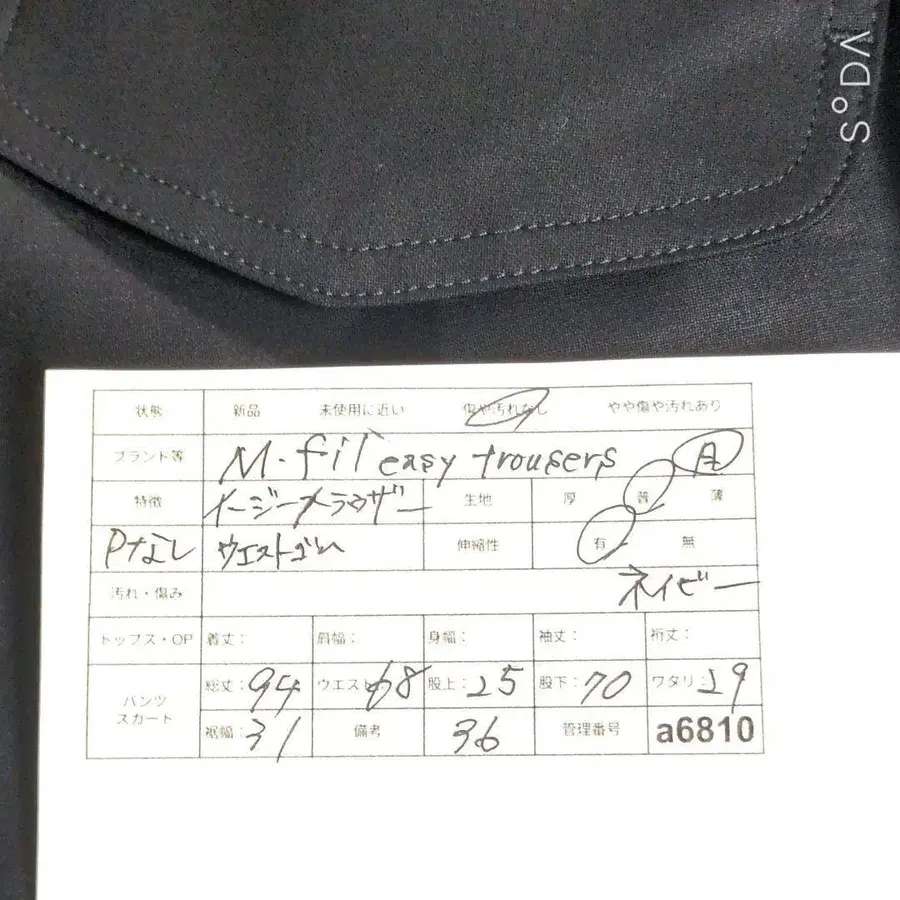 S°DA
状態 新品 未使用に近い 傷や汚れなし やや傷や汚れあり
ブランド等 M・fil easy trousers A
特徴 イージートラウザー 生地 厚 普 薄
Pなし ウエストゴム 伸縮性 有 無
汚れ・傷み ネイビー
トップス・OP 着丈: 肩幅: 身幅: 袖丈: 裄丈:
パンツ スカート 総丈:94 ウエスト:68 股上:25 股下:70 ワタリ:29
裾幅:31 備考 36 管理番号 a6810